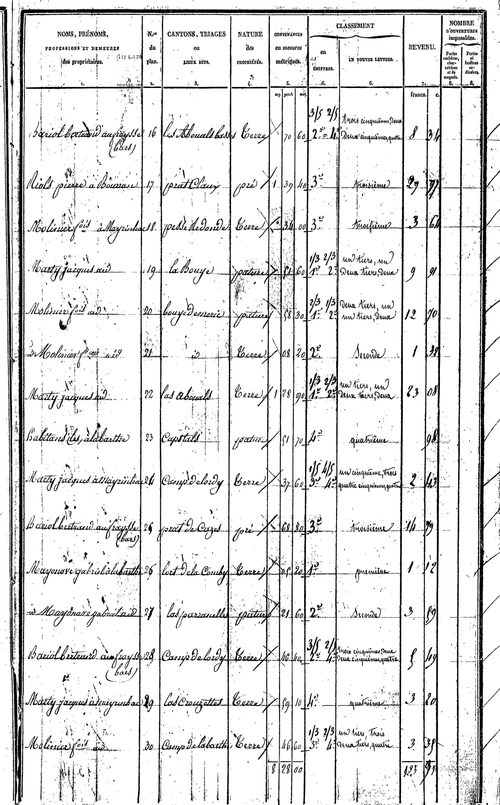 NOMS, PRÉNOMS, PROFESSIONS ET DEMEURES des propriétaires.
N.os du plan.
CANTONS, TRIAGES ou LIEUX DITS.
NATURE des
CONTENANCES en mesures métriques.
CLASSEMENT
en CHIFFRES.
EN TOUTES LETTRES.
REVENU.
NOMBRE D'OUVERTURES imposables.
francs. c.
Bariol bertrand au fraysse (bars) 16 Terre 70 60 3/5 2/5 2e 4e trois cinquièmes, deux 8 34
Riols pierre a 17 prat Claux pré 1 39 40 3e troisième 29 77
Molinier fois a Mayrinhac 18 Terre 34 00 3e troisième 3 64
Marty jacques aid 19 la Bouye pature 51 60 1/3 2/3 1e 2e un tiers, un deux tiers, deux 9 91
Molinier fois aid 20 pature 58 30 2/3 1/3 1e 2e deux tiers, un un tiers, deux 12 70
Molinier fois aid 21 id Terre 08 20 2e Seconde 1 39
Marty jacques aid 22 las abouals Terre 1 28 90 1/3 2/3 1e 2e un tiers, un deux tiers, deux 23 08
habitans des, a labarthe 23 Capitals patus 51 70 4e quatrième 98
Marty jacques a Mayrinhac 24 Camp de lordy Terre 37 60 1/5 4/5 3e 4e un cinquième, trois quatre cinquièmes, quatre 2 43
Bariol bertrand au fraysse (bars) 25 prat de Cazes pré 68 80 3e troisième 14 79
Mayonove gabriel a labarthe 26 lort de la Comby Terre 05 20 1e première 1 12
Mayonove gabriel aid 27 pature 21 60 2e Seconde 3 59
Bariol bertrand au fraysse (bars) 28 Camp de lordy Terre 46 3/5 2/5 2e 4e trois cinquièmes, deux deux cinquièmes, quatre 5 49
Marty jacques a mayrinhac 29 las Crouzettes Terre 59 10 4e quatrième 3 20
Molinier fois aid 30 Camp de labarthe Terre 46 60 1/3 2/3 3e 4e un tiers, trois deux tiers, quatre 3 38
8 28 00